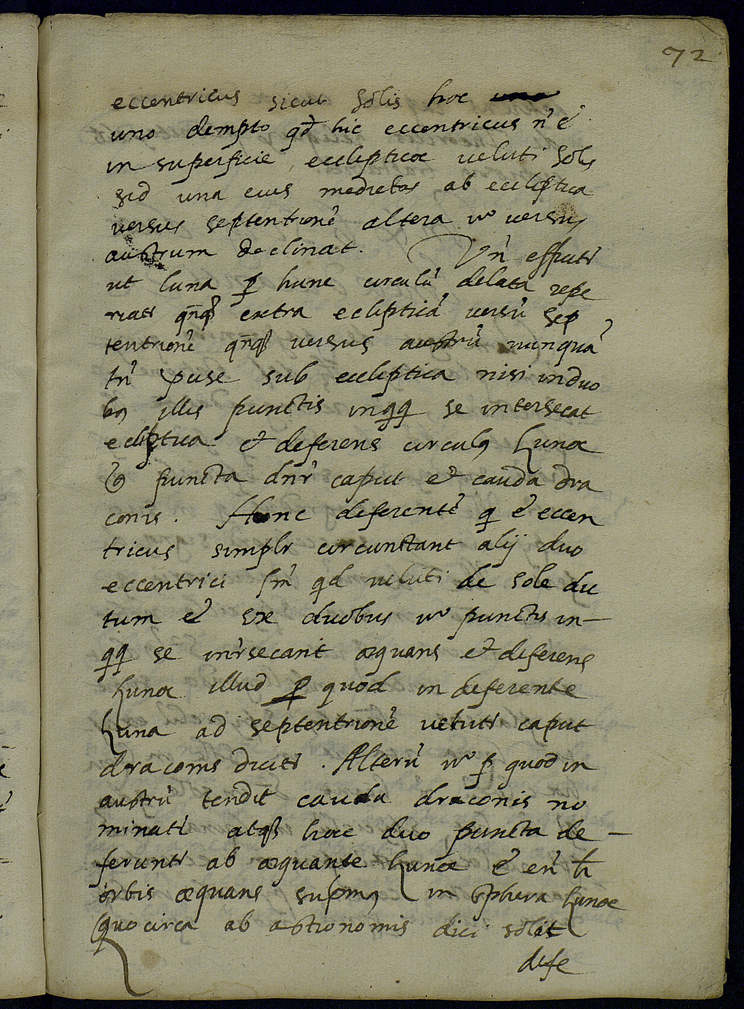 72
eccentricus sicut Solis hoc
uno dempto qd hic eccentricus n̄ ē
in superficie ecclipticæ veluti Solis
sed una eius medietas ab ecliptica
versus septentrionē altera vº versus
austrum declinat. Vn̄ effūti
ut luna ꝑ hunc circulū delata repe
riati qn̄qȝ extra eclipticā versū sep
tentrionē qn̄qȝ versus austrū nunquā
tn̄ sub eccliptica nisi in duo
bꝰ illis punctis in se intersecat
ecliptica et deferens circulꝰ Lunæ
puncta dn̄r caput et cauda dra
conis. Hunc deferentē q ē eccen
tricus simplr circunstant alij duo
eccentrici sm̄ qd veluti de sole dic
tum ē ex duobus vº punctis in
se int̄rsecant æquans et deferens
Lunæ illud ꝑ quod in deferente
Luna ad septentrionē veluti caput
draconis diciti. Alterū vº ꝑ quod in
austrū tendit cauda draconis no
minati atqȝ hæc duo puncta de
ferunti ab æquante Lunæ ē en̄ h
orbis æquans supmꝰ in sphera Lunæ
Quo circa ab astronomis dici solit
defe